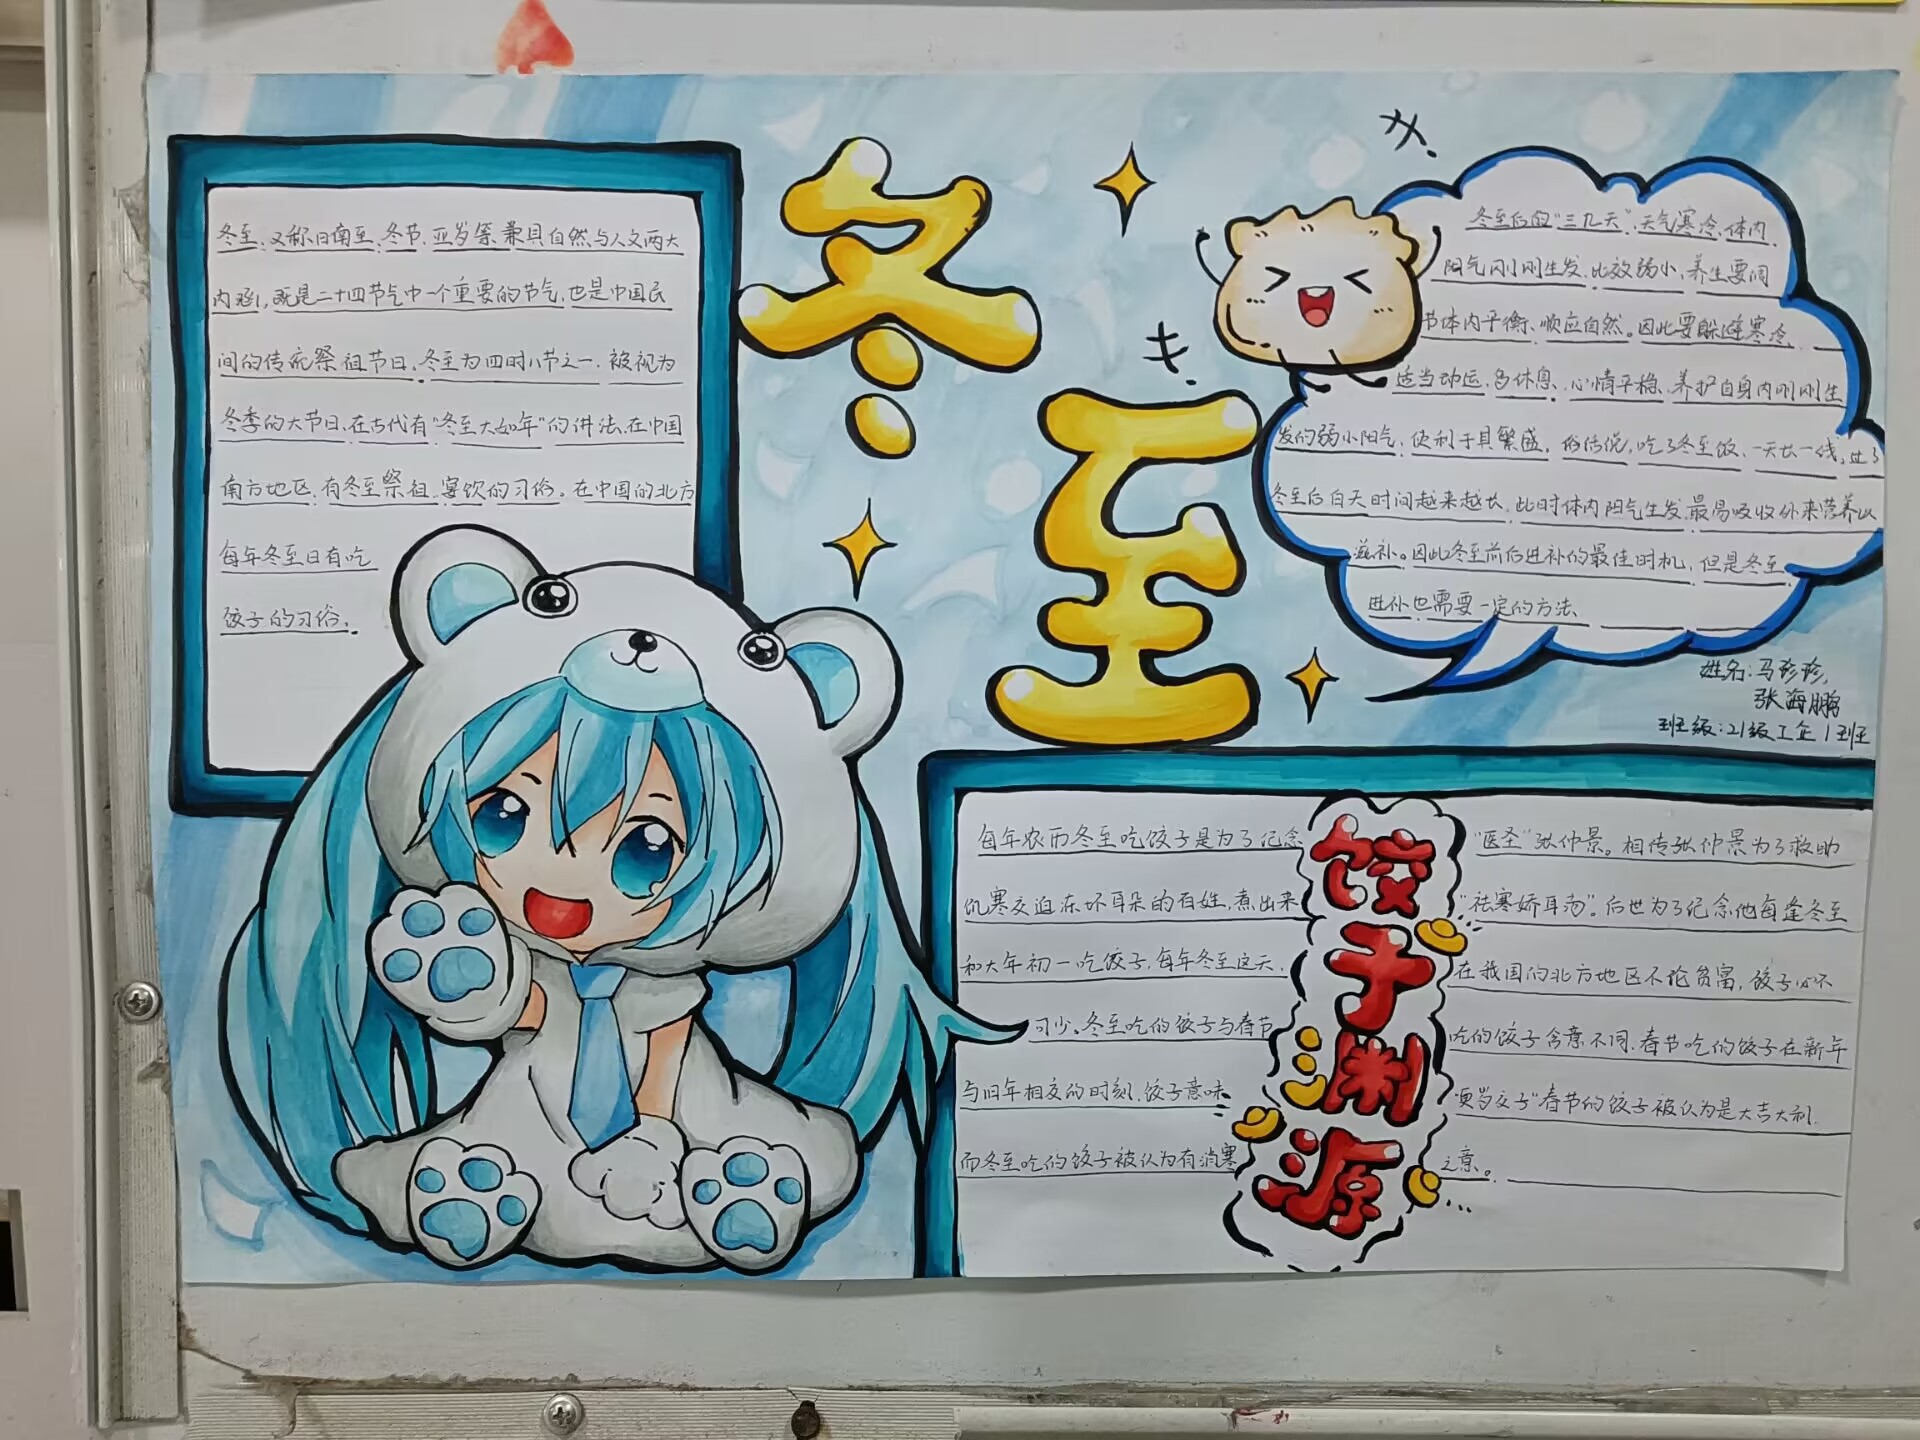 冬至
冬至,又称日南至、冬节、亚岁等,兼具自然与人文两大
内涵,既是二十四节气中一个重要的节气,也是中国民
间的传统祭祖节日。冬至为四时八节之一,被视为
冬季的大节日,在古代有“冬至大如年”的讲法,在中国
南方地区,有冬至祭祖、宴饮的习俗。在中国的北方
每年冬至日有吃
饺子的习俗。
冬至后的“三九天”,天气寒冷,体内
阳气刚刚生发,比效弱小,养生要调
节体内平衡、顺应自然。因此要躲避寒冷,
适当动运,多休息,心情平稳,养护自身内刚刚生
发的弱小阳气,使利于其繁盛。俗话说,吃了冬至饭,一天长一线,过了
冬至后白天时间越来越长,此时体内阳气生发,最易吸收外来营养以
滋补。因此冬至前后进补的最佳时机,但是冬至
进补也需要一定的方法、
姓名:马珍珍,
张海鹏
班级:21级工企1班
饺子渊源
每年农历冬至吃饺子是为了纪念“医圣”张仲景。相传张仲景为了救助
饥寒交迫冻坏耳朵的百姓,煮出来“祛寒娇耳汤”。后世为了纪念他每逢冬至
和大年初一吃饺子,每年冬至这天,在我国的北方地区不论贫富,饺子必不
可少。冬至吃的饺子与春节吃的饺子含意不同,春节吃的饺子在新年
与旧年相交的时刻,饺子意味“更岁交子”春节的饺子被认为是大吉大利,
而冬至吃的饺子被认为有消寒之意。